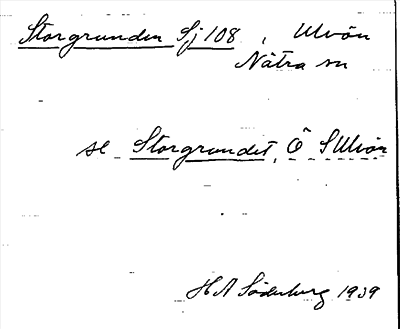 Storgrunden Sj 108, Ulvön
Nätra sn
se Storgrundet, Ö S Ulvön
H A Söderberg 1939